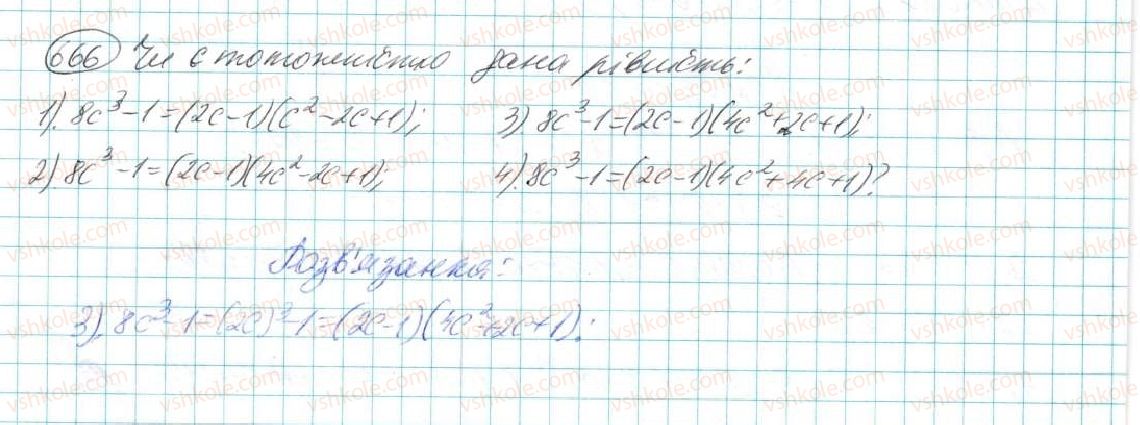 666 Чи є тотожністю дана рівність:
1). 8c³-1=(2c-1)(c²-2c+1); 3). 8c³-1=(2c-1)(4c²+2c+1);
2) 8c³-1=(2c-1)(4c²-2c+1); 4). 8c³-1=(2c-1)(4c²+4c+1)?
Розв'язання:
3). 8c³-1=(2c)³-1=(2c-1)(4c²+2c+1).
vshkole.com